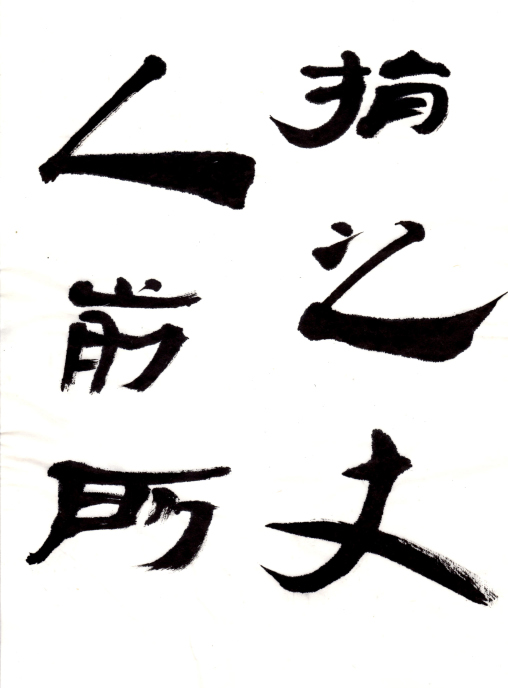 捐之丈
人前所